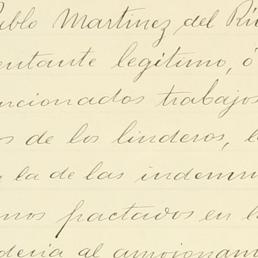 Pablo Martinez del Rio
entante legitimo, ó
ncionados trabajos
os de los linderos, l
y la de las indemn
inos pactados en l
dería al amojonam